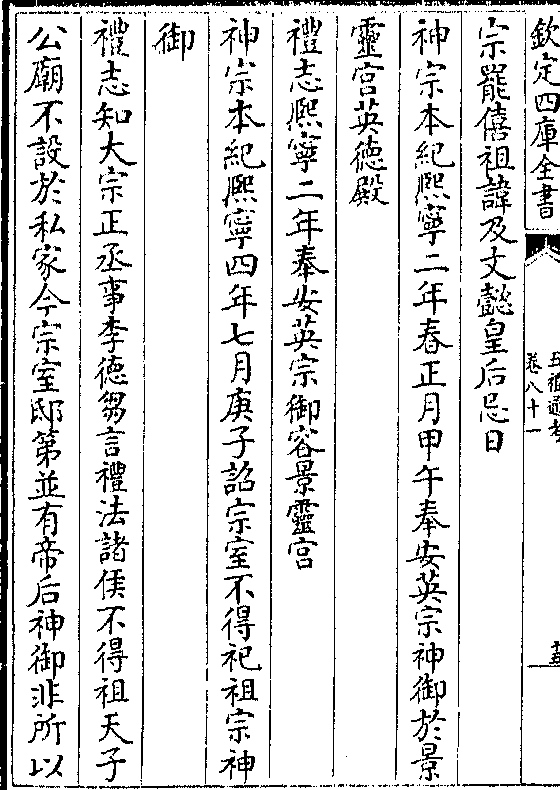 欽定四庫全書
卷八十一
宗罷僖祖諱及文懿皇后忌日
神宗本紀熙寧二年春正月甲午奉安英宗神御於景
靈宮英德殿
禮志熙寧二年奉安英宗御容景靈宮
神宗本紀熙寧四年七月庚子詔宗室不得祀祖宗神
御
禮志知大宗正丞事李德芻言禮法諸侯不得祖天子
公廟不設於私家今宗室邸第並有帝后神御非所以